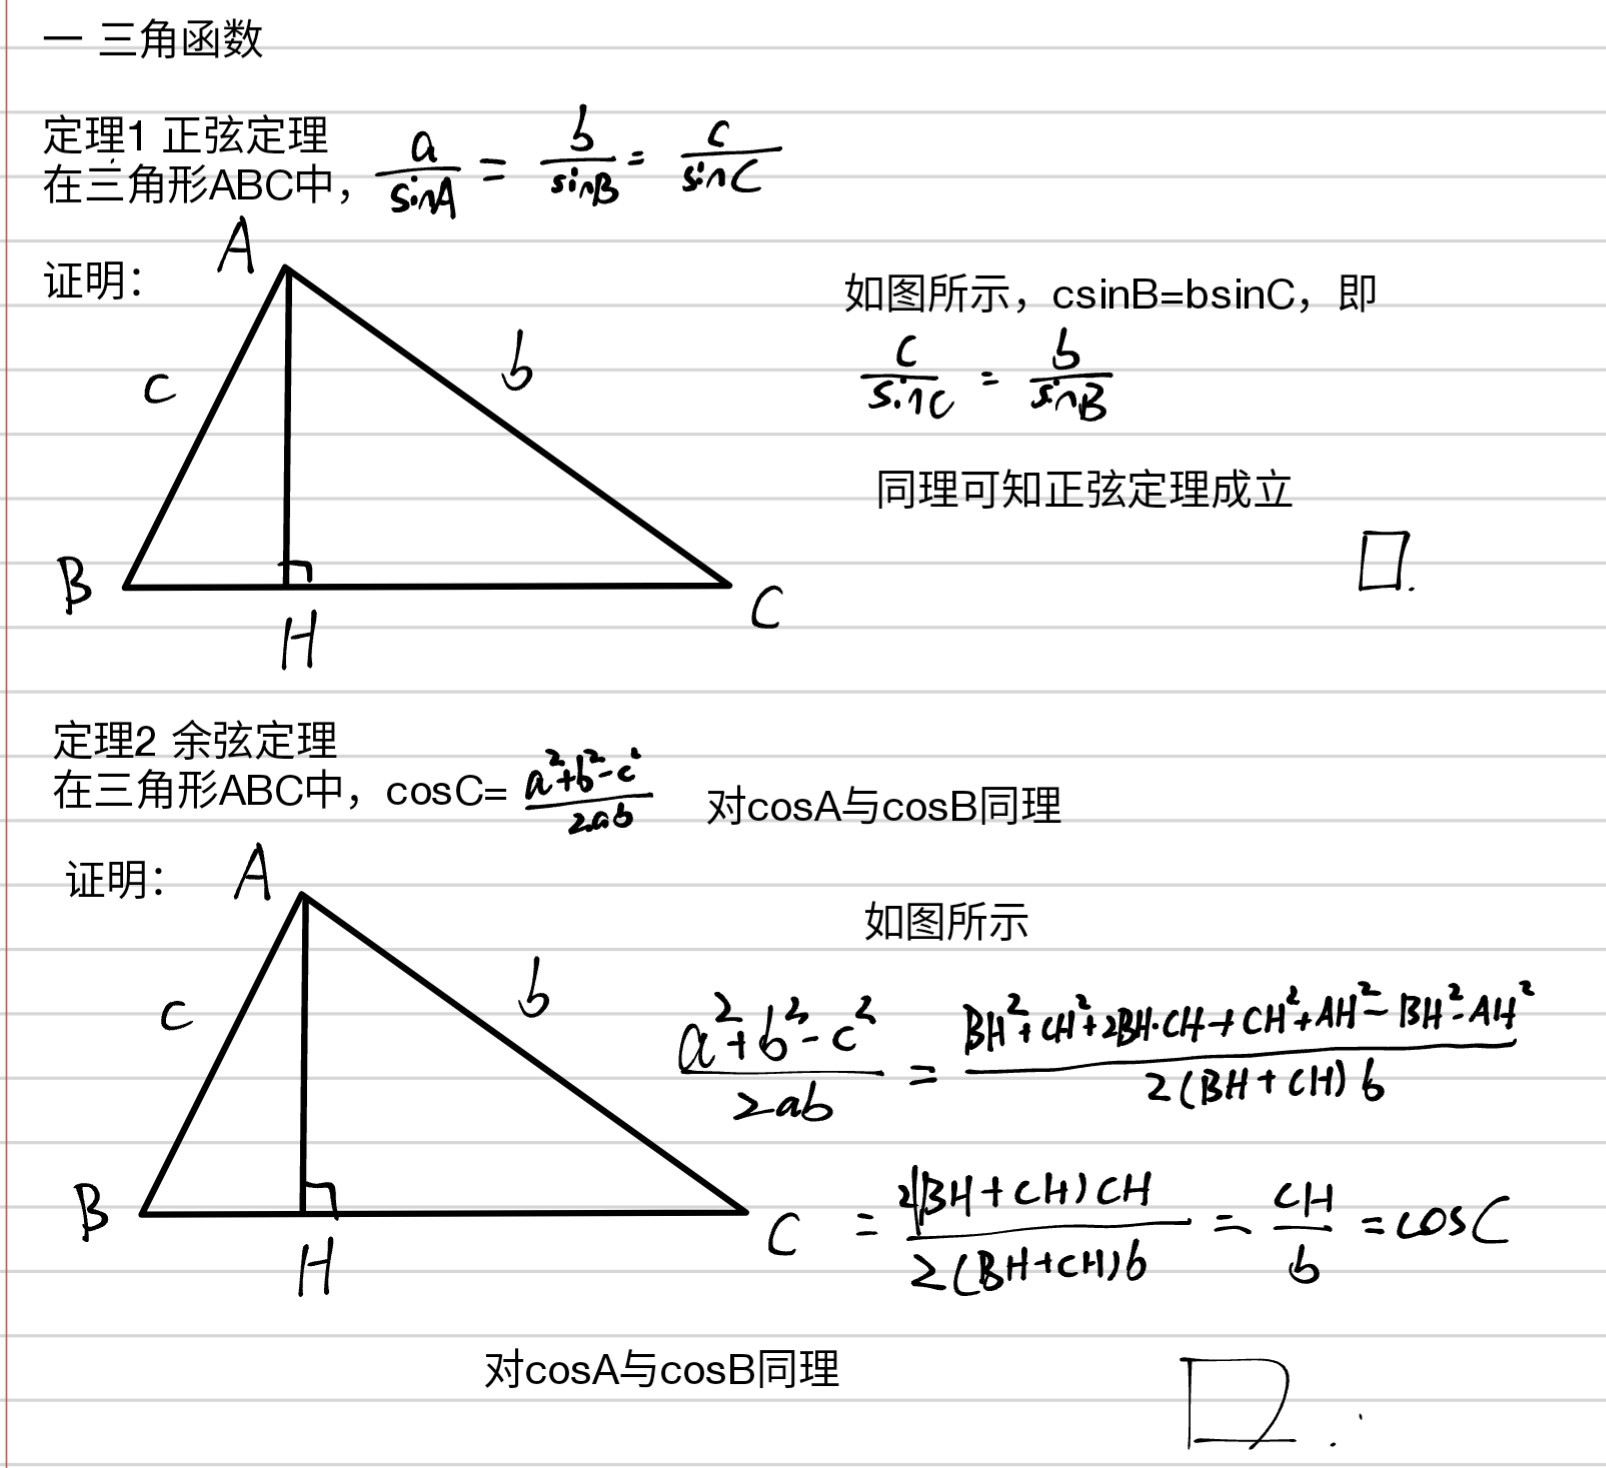 一 三角函数
定理1 正弦定理
在三角形ABC中，a/sinA = b/sinB = c/sinC
证明：
A
c
b
B
H
C
如图所示，csinB=bsinC，即
c/sinC = b/sinB
同理可知正弦定理成立
□.
定理2 余弦定理
在三角形ABC中，cosC= (a²+b²-c²)/2ab 对cosA与cosB同理
证明：
A
c
b
B
H
C
如图所示
(a²+b²-c²)/2ab = (BH²+CH²+2BH·CH+CH²+AH²-BH²-AH²)/2(BH+CH)b
= 2(BH+CH)CH/2(BH+CH)b = CH/b = cosC
对cosA与cosB同理
□.